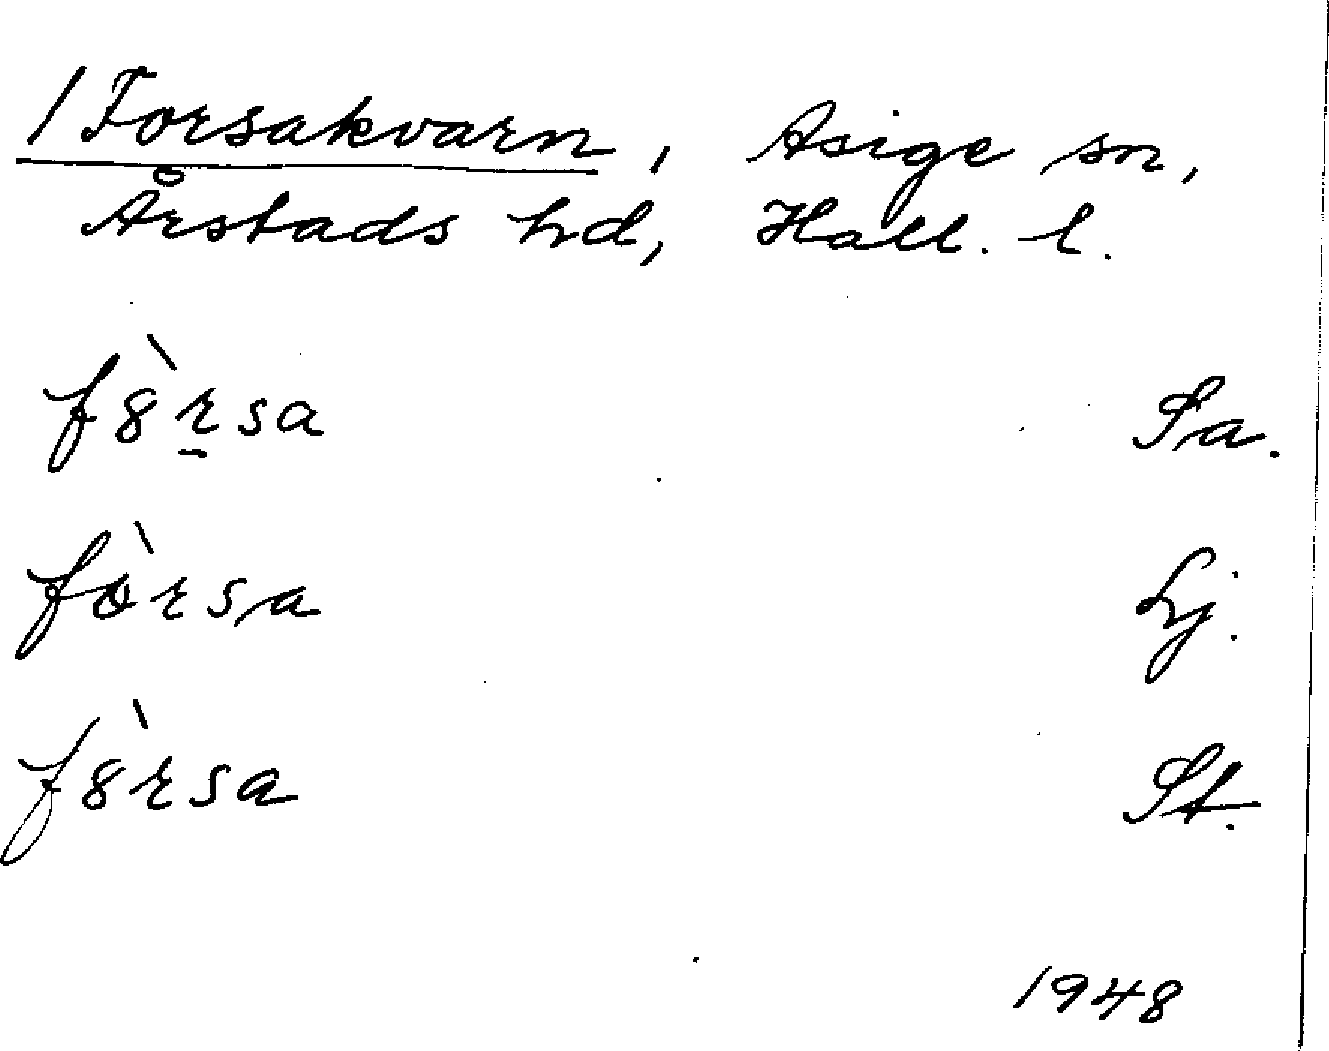 / Forsakvarn, Asige sn,
Årstads hd, Hall. l.
f8̀r̠sa Sa.
fòrsa Lj.
f8̀rsa St.
1948